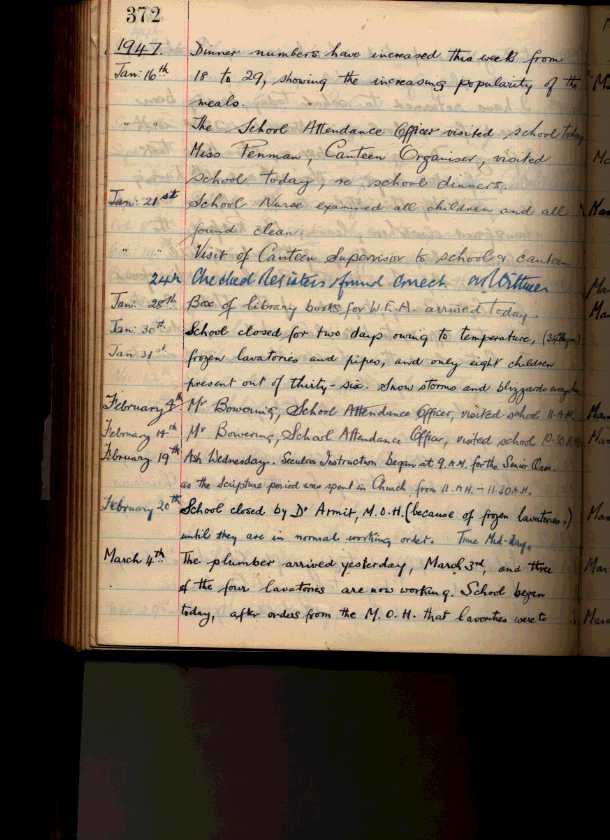 372
1947. Dinner numbers have increased this week from
Jan: 16th 18 to 29, showing the increasing popularity of the
meals.
" " The School Attendance Officer visited school today
Miss Penman, Canteen Organiser, visited
school today, re school dinners.
Jan: 21st School Nurse examined all children and all
found clean.
" " Visit of Canteen Supervisor to school & canteen
24th Checked Registers & found correct
Jan: 28th Box of library books for W.E.A. arrived today.
Jan: 30th School closed for two days owing to temperature,
Jan 31st frozen lavatories and pipes, and only eight children
present out of thirty-six. Snow storms and blizzards
February 4th Mr Bowering, School Attendance Officer, visited school 11-
February 14th Mr Bowering, School Attendance Officer, visited school 10-30
February 19th Ash Wednesday. Secular Instruction began at 9 A.M. for the Senior
as the Scripture period was spent in Church from 11 A.M. - 11.30 A.M.
February 20th School closed by Dr Armit, M.O.H. (because of frozen lavatories,)
until they are in normal working order. Time Mid-day.
March 4th The plumber arrived yesterday, March 3rd, and three
of the four lavatories are now working. School began
today, after orders from the M.O.H. that lavatories were to